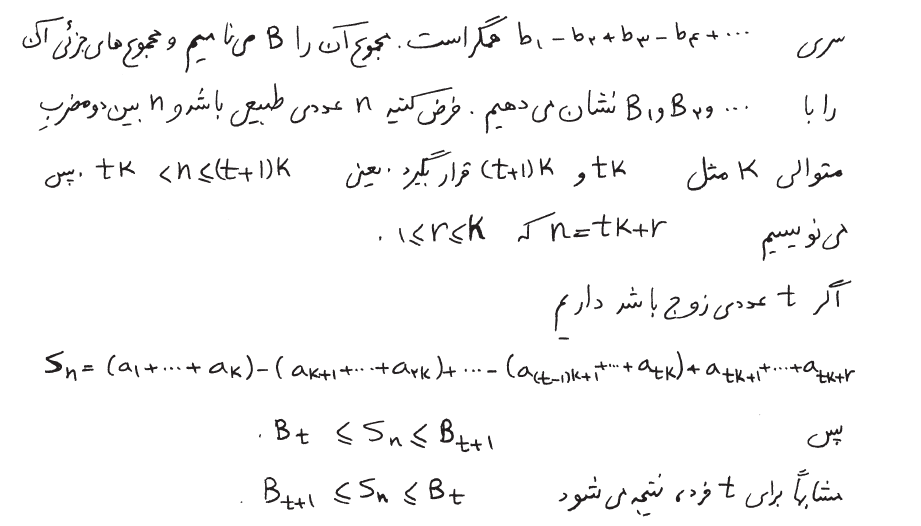 سری b₁ - b₂ + b₃ - b₄ + ... همگراست. مجموع آن را B می‌نامیم و مجموع‌های جزئی آن
را با B₁ و B₂ و ... نشان می‌دهیم. فرض کنید n عددی طبیعی باشد و n بین دو مضرب
متوالی k مثل tk و (t+1)k قرار بگیرد. یعنی tk < n ≤ (t+1)k. پس
می‌نویسیم n = tk+r که ۱ ≤ r ≤ k.
اگر t عددی زوج باشد داریم
Sₙ = (a₁ + ... + aₖ) - (aₖ₊₁ + ... + a₂ₖ) + ... - (a₍ₜ₋₁₎ₖ₊₁ + ... + aₜₖ) + aₜₖ₊₁ + ... + aₜₖ₊ᵣ
پس Bₜ ≤ Sₙ ≤ Bₜ₊₁.
مشابهاً برای t فرد، نتیجه می‌شود Bₜ₊₁ ≤ Sₙ ≤ Bₜ.